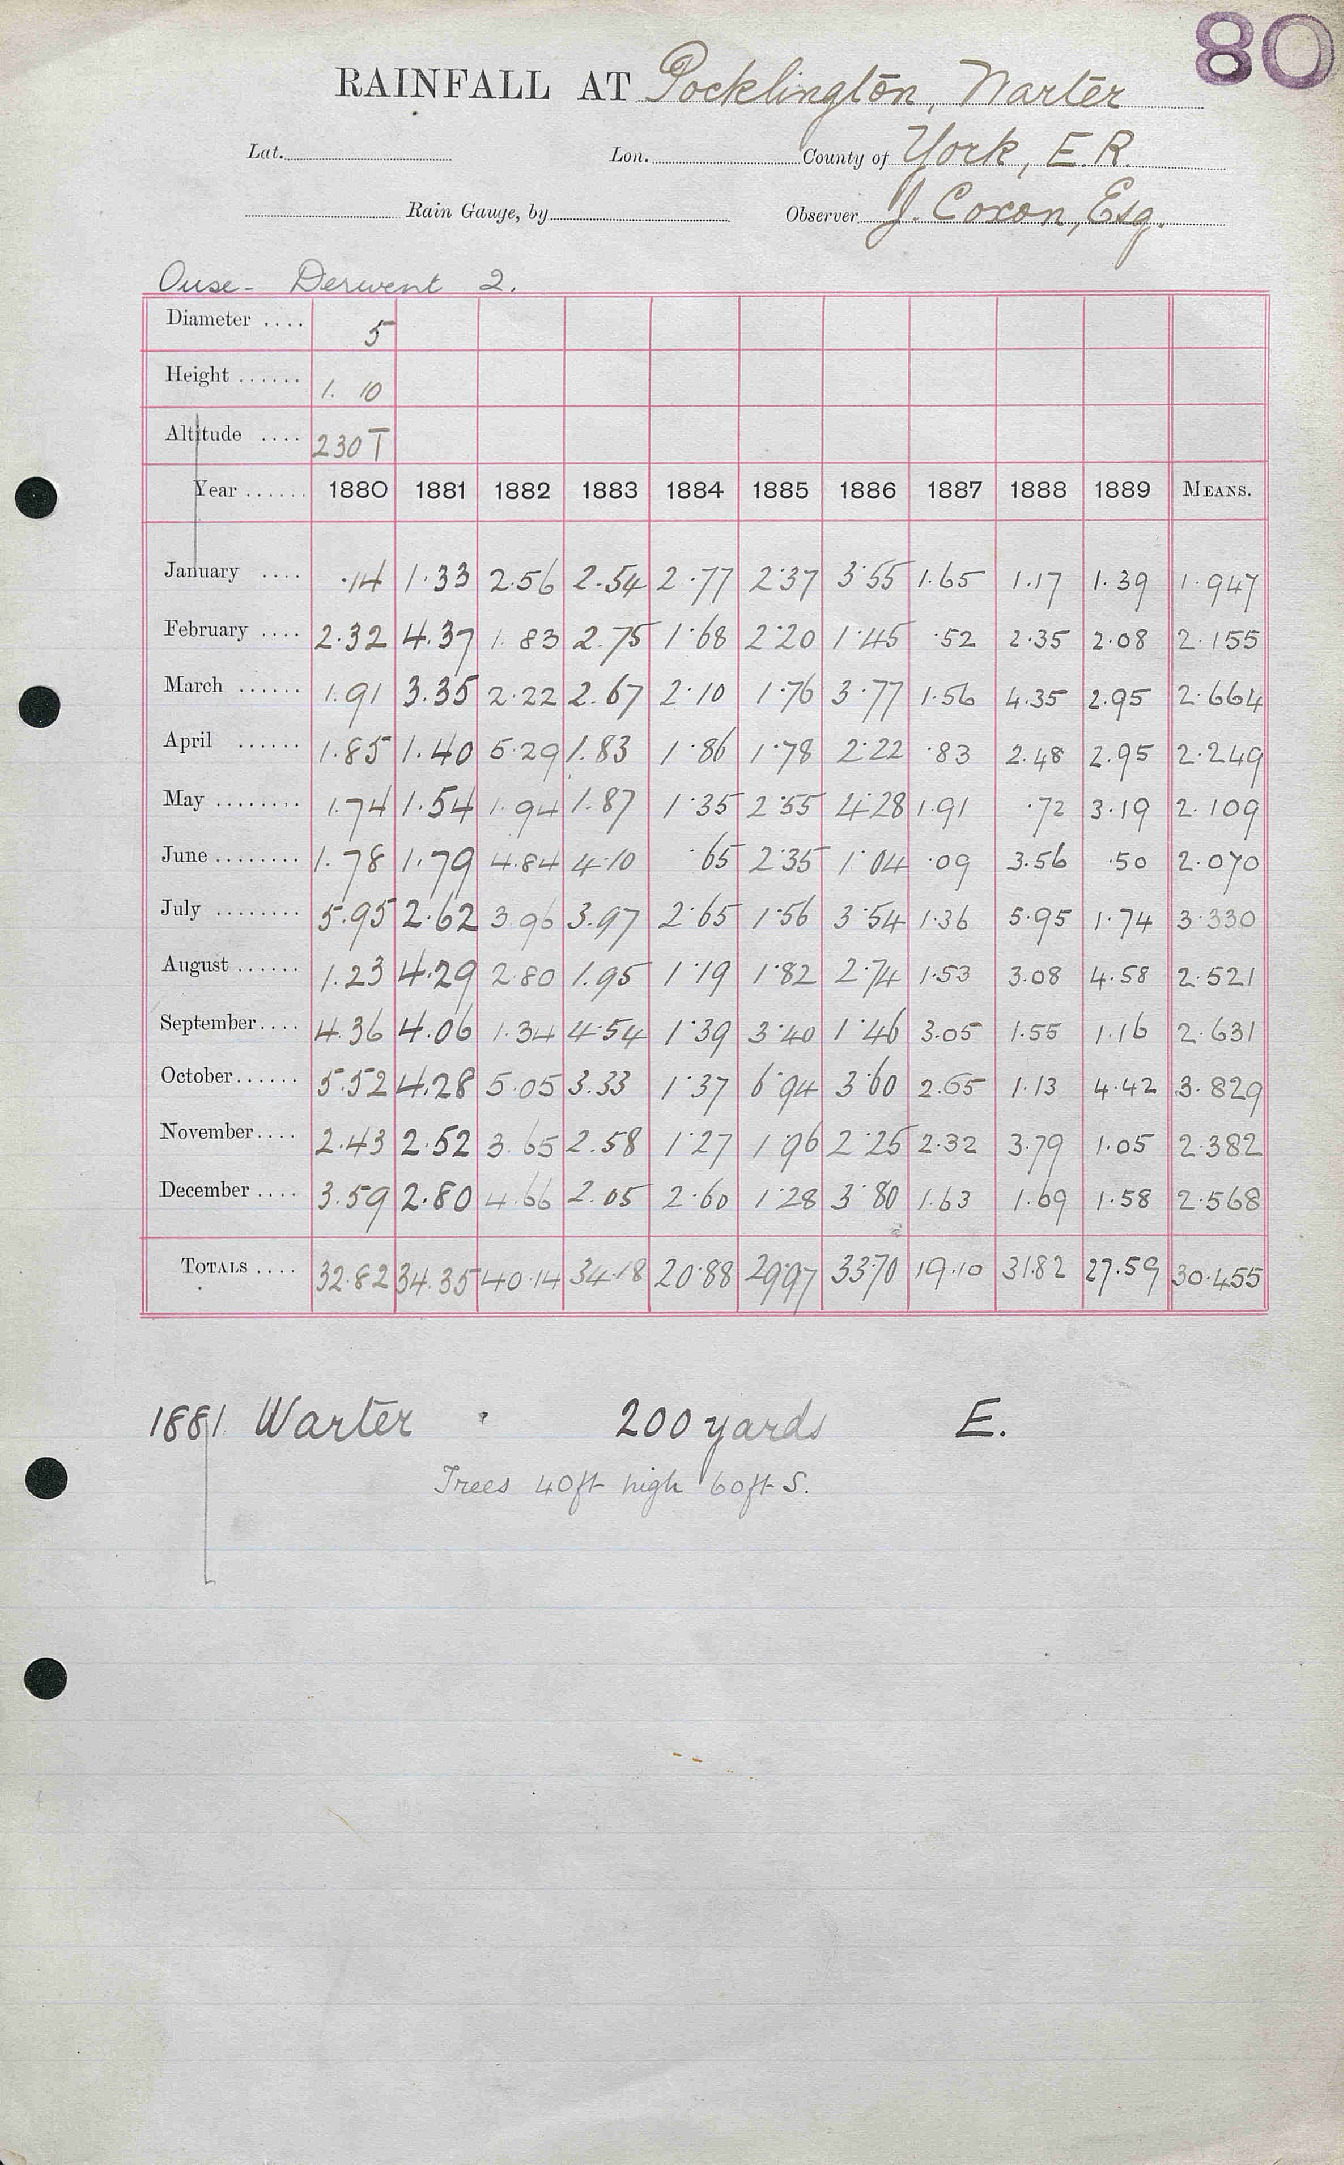 80
RAINFALL AT Pocklington, Warter
Lat. Lon. County of York, E.R.
Rain Gauge, by Observer J. Coxon, Esq.
Ouse - Derwent 2.
Diameter .... 5
Height ...... 1. 10
Altitude .... 230 T
Year ...... 1880 1881 1882 1883 1884 1885 1886 1887 1888 1889 MEANS.
January .... .14 1.33 2.56 2.54 2.77 2.37 3.55 1.65 1.17 1.39 1.947
February .... 2.32 4.37 1.83 2.75 1.68 2.20 1.45 .52 2.35 2.08 2.155
March ...... 1.91 3.35 2.22 2.67 2.10 1.76 3.77 1.56 4.35 2.95 2.664
April ...... 1.85 1.40 5.29 1.83 1.86 1.78 2.22 .83 2.48 2.95 2.249
May ........ 1.74 1.54 1.94 1.87 1.35 2.55 4.28 1.91 .72 3.19 2.109
June ........ 1.78 1.79 4.84 4.10 .65 2.35 1.04 .09 3.56 .50 2.070
July ........ 5.95 2.62 3.96 3.97 2.65 1.56 3.54 1.36 5.95 1.74 3.330
August ...... 1.23 4.29 2.80 1.95 1.19 1.82 2.74 1.53 3.08 4.58 2.521
September .... 4.36 4.06 1.34 4.54 1.39 3.40 1.46 3.05 1.55 1.16 2.631
October ...... 5.52 4.28 5.05 3.33 1.37 6.94 3.60 2.65 1.13 4.42 3.829
November .... 2.43 2.52 3.65 2.58 1.27 1.96 2.25 2.32 3.79 1.05 2.382
December .... 3.59 2.80 4.66 2.05 2.60 1.28 3.80 1.63 1.69 1.58 2.568
TOTALS .... 32.82 34.35 40.14 34.18 20.88 29.97 33.70 19.10 31.82 27.59 30.455
1881 Warter 200 yards E.
Trees 40ft high 60ft S.